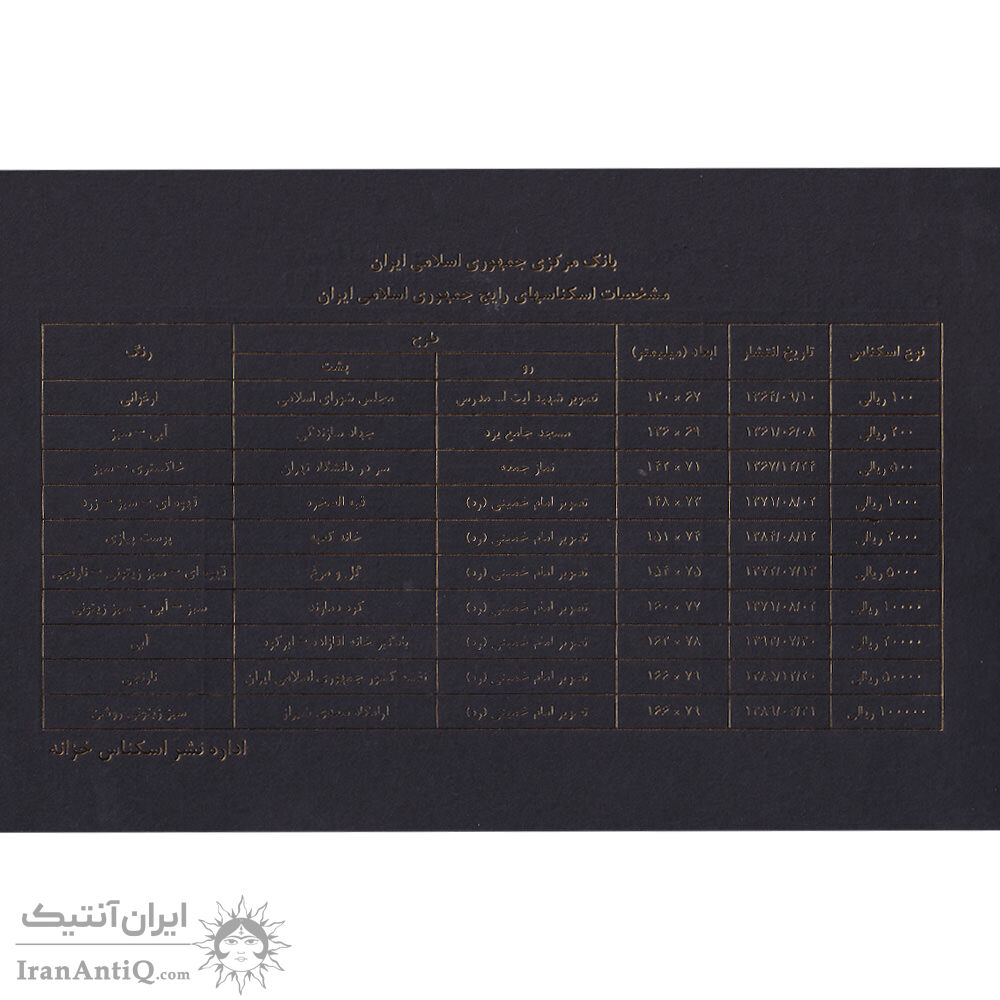 بانک مرکزی جمهوری اسلامی ایران
مشخصات اسکناسهای رایج جمهوری اسلامی ایران
نوع اسکناس تاریخ انتشار ابعاد (میلیمتر) طرح رنگ
رو پشت
۱۰۰ ریالی ۱۳۶۴/۰۹/۱۰ ۶۷ × ۱۳۰ تصویر شهید ایت اله مدرس مجلس شورای اسلامی ارغوانی
۲۰۰ ریالی ۱۳۶۱/۰۶/۰۸ ۶۹ × ۱۳۶ مسجد جامع یزد جهاد سازندگی آبی - سبز
۵۰۰ ریالی ۷۱ × ۱۴۲ نماز جمعه سر در دانشگاه تهران خاکستری - سبز
۱۰۰۰ ریالی ۱۳۷۱/۰۸/۰۲ ۷۳ × ۱۴۸ تصویر امام خمینی (ره) قبه الصخره قهوه ای - سبز - زرد
۲۰۰۰ ریالی ۷۴ × ۱۵۱ تصویر امام خمینی (ره) خانه کعبه پوست پیازی
۵۰۰۰ ریالی ۷۵ × ۱۵۴ تصویر امام خمینی (ره) گل و مرغ قهوه ای - سبز زیتونی - نارنجی
۱۰۰۰۰ ریالی ۱۳۷۱/۰۸/۰۲ ۷۷ × ۱۶۰ تصویر امام خمینی (ره) کوه دماوند سبز - آبی - سبز زیتونی
۲۰۰۰۰ ریالی ۷۸ × ۱۶۳ تصویر امام خمینی (ره) بادگیر خانه اقازاده - ابرکوه آبی
۵۰۰۰۰ ریالی ۱۳۸۵/۱۲/۲۰ ۷۹ × ۱۶۶ تصویر امام خمینی (ره) نقشه کشور جمهوری اسلامی ایران نارنجی
۱۰۰۰۰۰ ریالی ۷۹ × ۱۶۶ تصویر امام خمینی (ره) ارامگاه سعدی شیراز سبز زیتونی روشن
اداره نشر اسکناس خزانه
ایران آنتیک
IranAntiQ.com